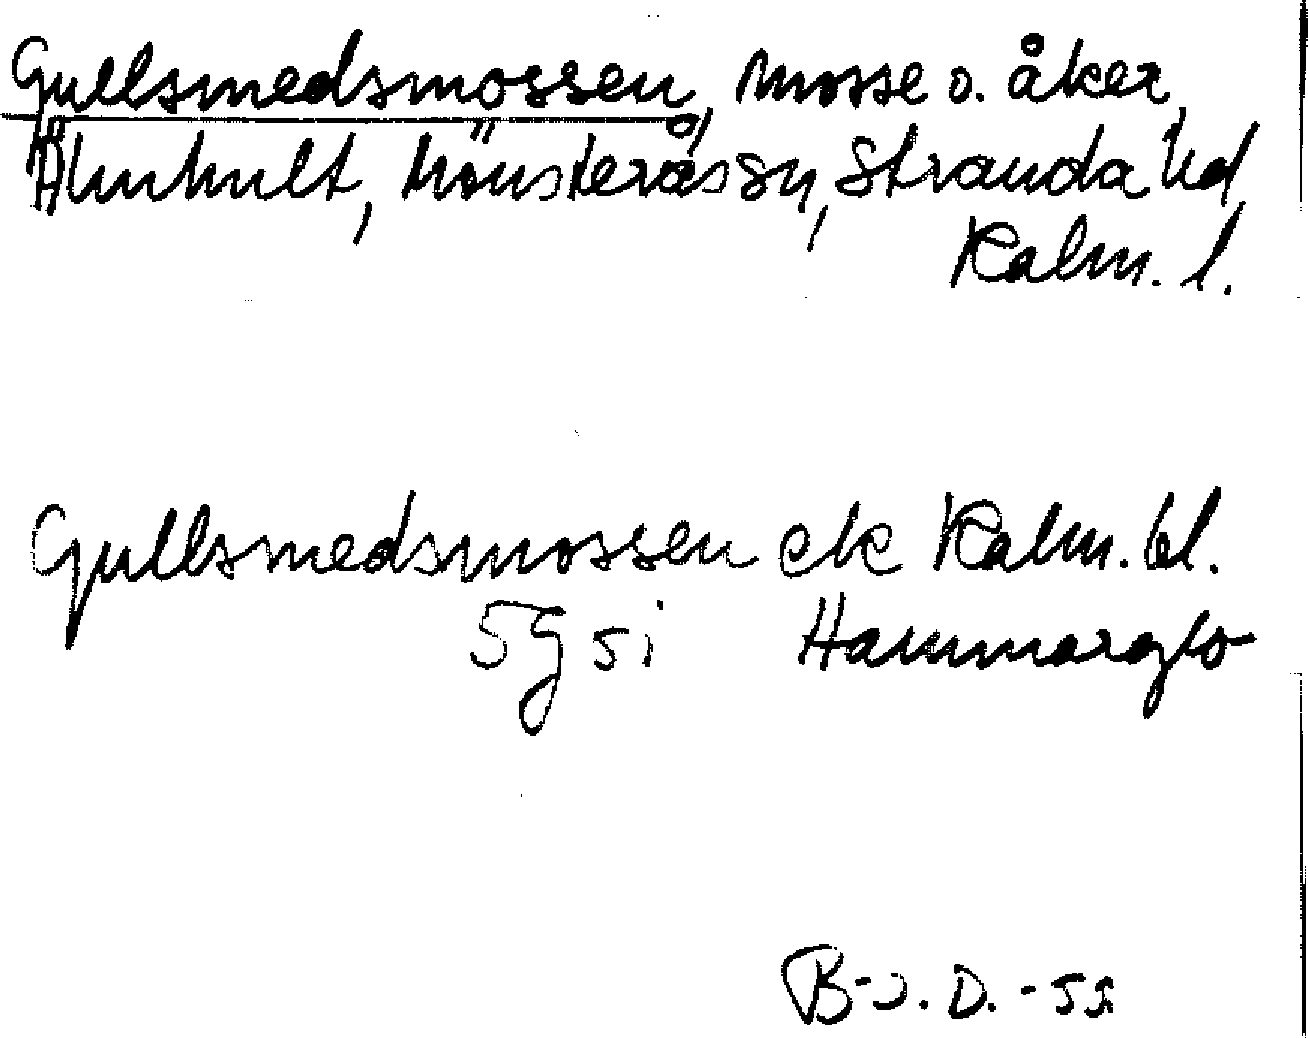 Gullsmedsmossen, mosse o. åker,
Älmhult, Mönsterås sn, Stranda hd,
Kalm. l.
Gullsmedsmossen ek Kalm. bl.
5G 5i Hammarglo
B-J. D. -55